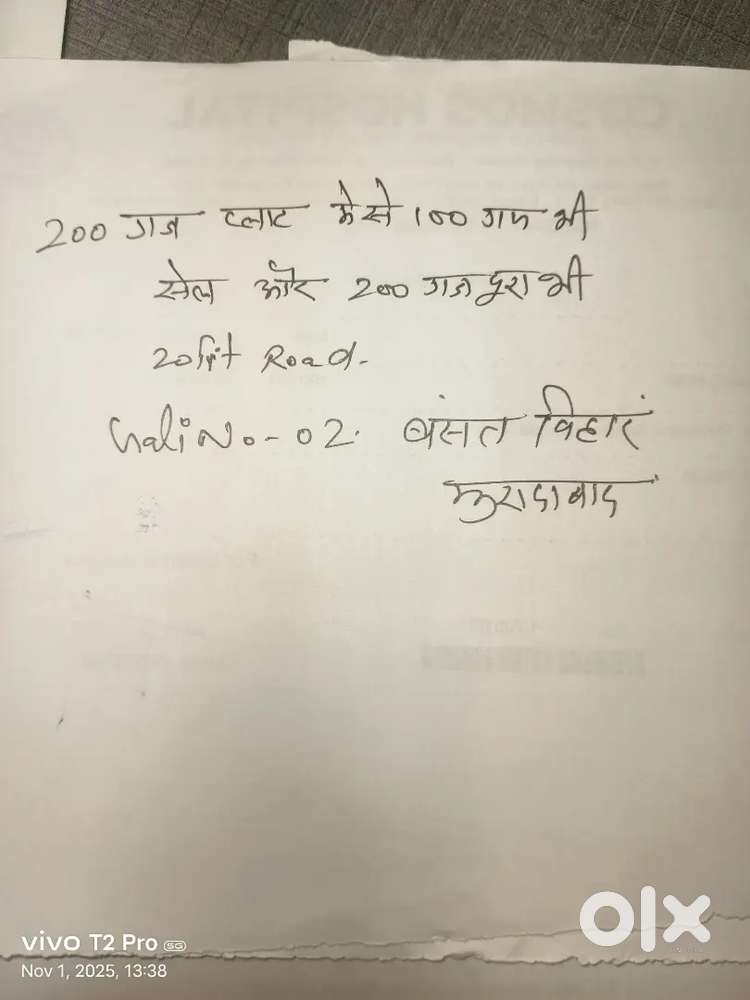 COSMOS HOSPITAL
200 गज प्लाट मे से 100 गज भी
सेल और 200 गज पुरा भी
20 fit Road.
Gali No - 02. बंसत विहारं
मुरादाबाद
olx
vivo T2 Pro 5G
Nov 1, 2025, 13:38